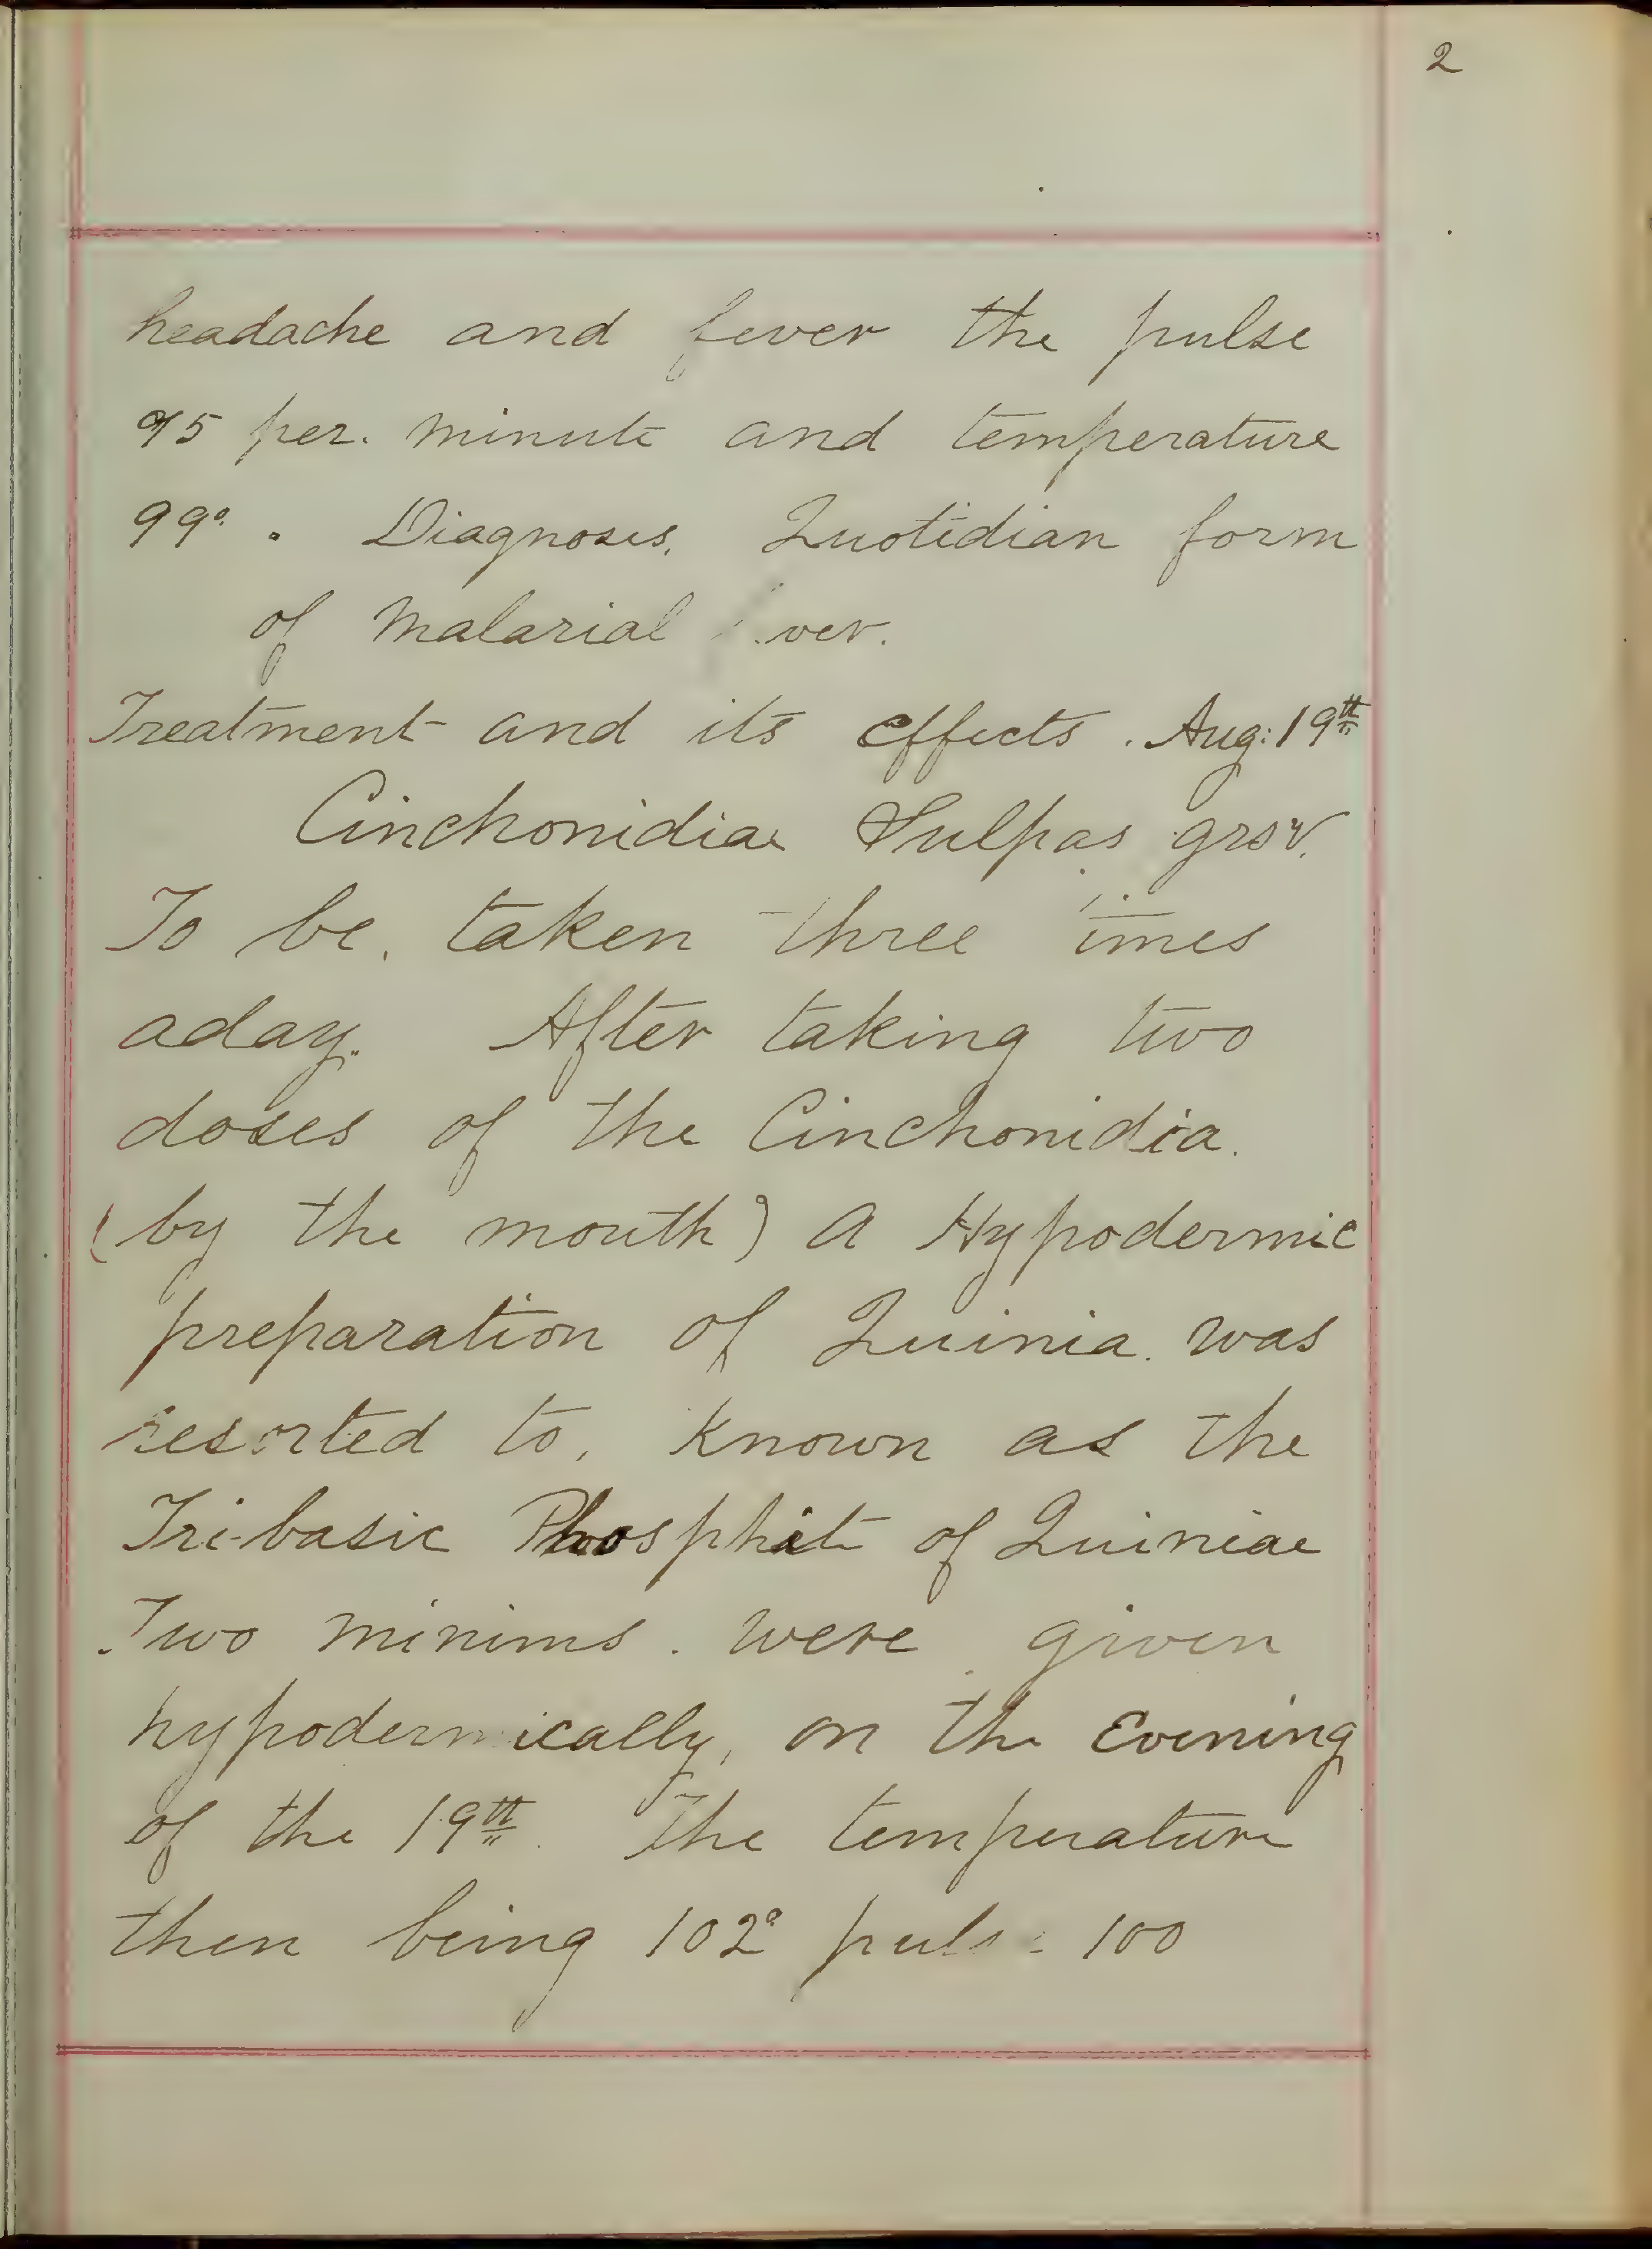 2
headache and fever the pulse
95 per. minute and temperature
99°. Diagnosis. Quotidian form
of Malarial fever.
Treatment and its effects. Aug: 19th
Cinchonidiae Sulphas grs v.
To be. taken three times
aday. After taking two
doses of the Cinchonidia.
(by the mouth) a Hypodermic
preparation of Quinia. was
resorted to, known as the
Tri-basic Phosphate of Quiniae
Two minims. were given
hypodermically, on the Evening
of the 19th. The temperature
then being 102° pulse 100